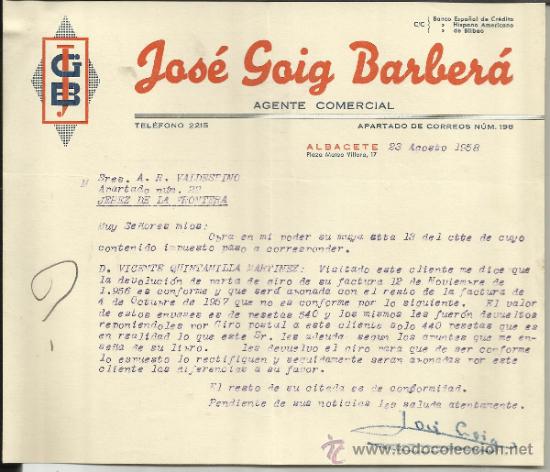 JGB
C/C Banco Español de Crédito
» Hispano Americano
» de Bilbao
José Goig Barberá
AGENTE COMERCIAL
TELÉFONO 2215
APARTADO DE CORREOS NÚM. 196
ALBACETE 23 Agosto 1958
Plaza Mateo Villora, 17
Sres. A. R. VALDESPINO
Apartado núm. 22
JEREZ DE LA FRONTERA
Muy Señores mios:
Obra en mi poder su muya atta 18 del ctte de cuyo
contenido impuesto paso a corresponder.
D. VICENTE QUINTANILLA MARTINEZ: Visitado este cliente me dice que
la devolución de parte de giro de su factura 12 de Noviembre de
1.956 es conforme y que será abonada con el resto de la factura de
4 de Octubre de 1957 que no es conforme por lo siguiente. El valor
de estos envases es de pesetas 540 y los mismos les fuerón devueltos
reponiendoles por Giro postal a este cliente solo 440 pesetas que es
en realidad lo que este Sr. les adeuda segun los apuntes que me en-
seña de su libro. les devuelvo el giro para que de ser conforme
lo expuesto lo rectifiquen y seguidamente serán abonadas por este
cliente las diferencias a su favor.
El resto de su citada es de conformidad.
Pendiente de sus noticias les saluda atentamente.
José Goig
todocoleccion.net